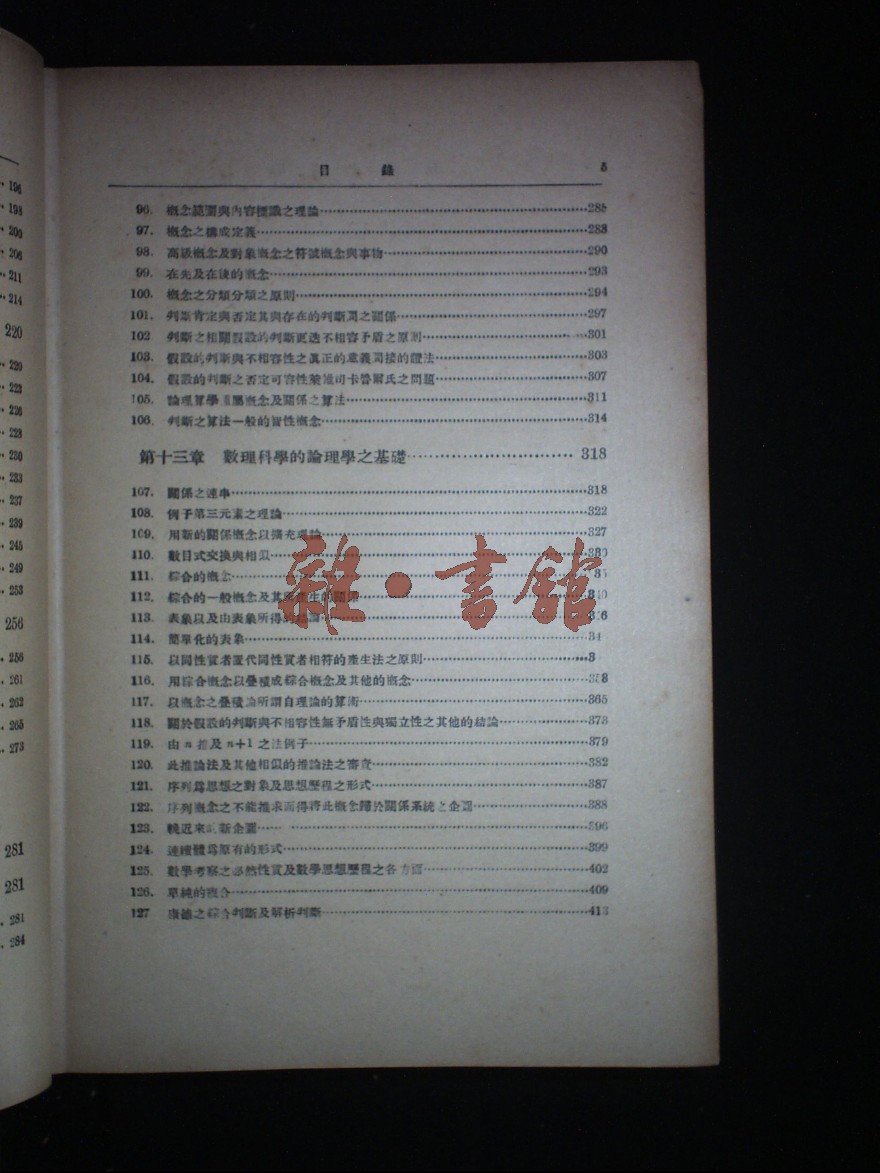 196
198
200
206
211
214
220
220
223
226
228
230
233
237
239
245
249
253
256
256
261
262
265
273
281
281
281
284
目 錄 5
96. 概念範圍與內容標識之理論 285
97. 概念之構成定義 288
98. 高級概念及對象概念之符號概念與事物 290
99. 在先及在後的概念 293
100. 概念之分類分類之原則 294
101. 判斷肯定與否定其與存在的判斷間之關係 297
102 判斷之相關假設的判斷更迭不相容矛盾之原則 301
103. 假設的判斷與不相容性之眞正的意義間接的證法 303
104. 假設的判斷之否定可容性 司卡魯爾氏之問題 307
105. 論理算學 屬概念及關係之算法 311
106. 判斷之算法一般的皆性概念 314
第十三章 數理科學的論理學之基礎 318
107. 關係之連串 318
108. 例子第三元素之理論 322
109. 用新的關係概念以擴充理論 327
110. 數目式交換與相似 330
111. 綜合的概念
112. 綜合的一般概念及其 產生的關係
113. 表象以及由表象所得的結論
114. 簡單化的表象
115. 以同性質者置代同性質者相符的產生法之原則
116. 用綜合概念以疊積成綜合概念及其他的概念 358
117. 以概念之疊積論所謂自理論的算術 365
118. 關於假設的判斷與不相容性無矛盾性與獨立性之其他的結論 373
119. 由 n 推及 n+1 之法例子 379
120. 此推論法及其他相似的推論法之審查 382
121. 序列爲思想之對象及思想歷程之形式 387
122. 序列概念之不能推求而得將此概念歸於關係系統之企圖 388
123. 晚近來 新企圖 396
124. 連續體爲原有的形式 399
125. 數學考察之必然性質及數學思想歷程之各方面 402
126. 單純的複合 409
127 康德之綜合判斷及解析判斷 413
雜·書館